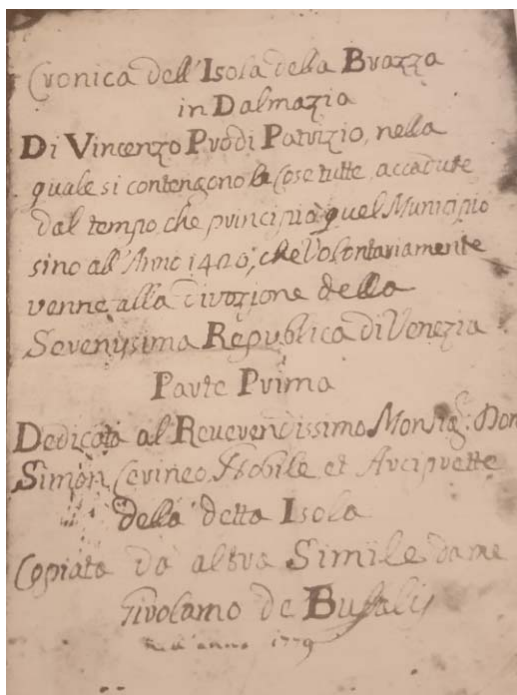 Cronica dell'Isola della Brazza
in Dalmazia
Di Vincenzo Prodi Patrizio, nella
quale si contengono le Cose tutte, accadute
dal tempo che principiò quel Municipio
sino all'Anno 1420, che Volontariamente
venne alla divozione della
Serenissima Republica di Venezia
Parte Prima
Dedicata al Reverendissimo Monsig: Don
Simon Cevineo Nobile et Arciprette
della detta Isola
Copiata da altra Simile da me
Girolamo de Bufalis
anno 1779